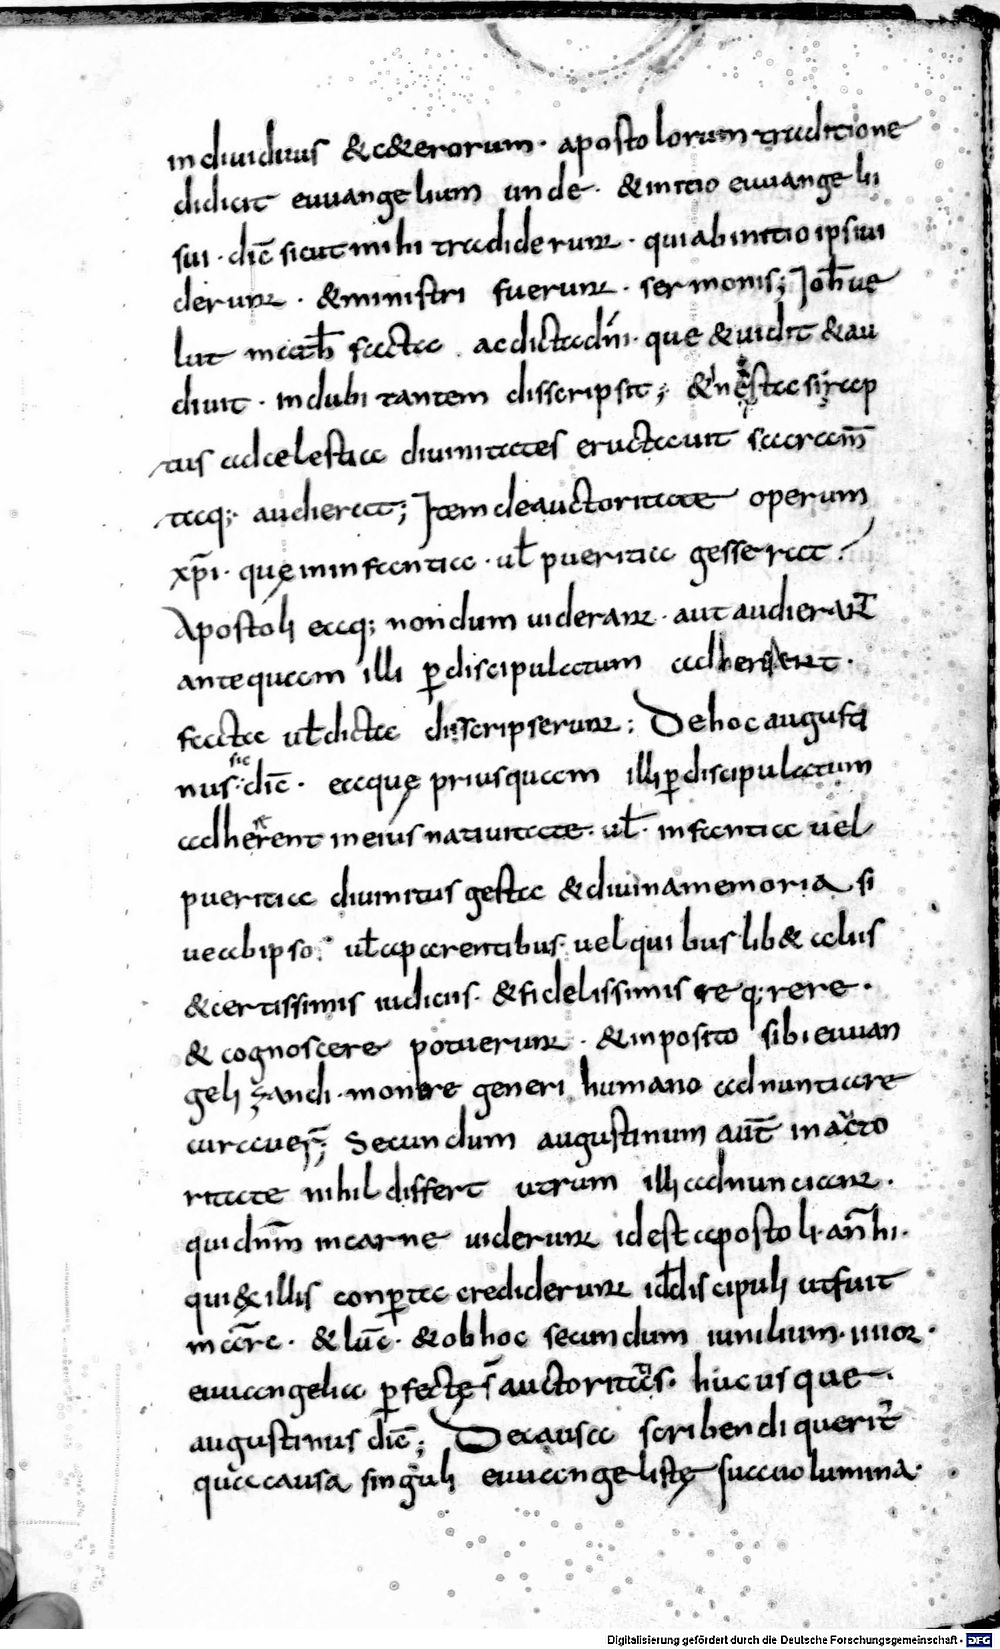 indiuiduus &c&erorum · apostolorum traditione
didicit euuangelium unde · &initio euuangelii
sui · dic̄ sicut mihi tradiderunt · qui ab initio ipsi ui
derunt · &ministri fuerunt · sermonis; Joh̄ ue
lut math̄ facta ac dicta dn̄i · que &uidit &au
diuit · indubitantem disscripsit; & sicap
tus ad celestia diuinitates eructauit sacram̄
taq; audierat; Item de auctoritate operum
xp̄i · quę in infantia · ul̄ pueritia gesserat
Apostoli eaq; nondum uiderant · aut audierant
antequam illi p̱ discipulatum adherent ·
facta ul̄ dicta disscripserunt; De hoc augusti
nus sic dic̄ · eaquę priusquam illi p̱ discipulatum
adherent in eius natiuitate · ul̄ · infantia uel
pueritia diuinitus gesta &diuina memoria si
ue ab ipso · ul̄ a parentibus uel quibuslib& aliis
&certissimis iudiciis · &fidelissimis reqrere ·
& cognoscere potuerunt · &inposito sibi euuan
gelizandi · monere generi humano adnuntiare
curauer̄; Secundum augustinum aut̄ in aucto
ritate nihil differt utrum illi adnuncient ·
qui dn̄m in carne uiderunt id est apostoli · an hi ·
qui ex illis conp̱ta crediderunt id discipuli ut fuit
marc̄ · & luc̄ · & ob hoc secundum iunilium · iiiior ·
euuangelia p̱fectę s̄ auctoritatis · hucusque ·
augustinus dic̄; De causa scribendi querit̄
qua causa singuli euuangelistę sua uolumina ·